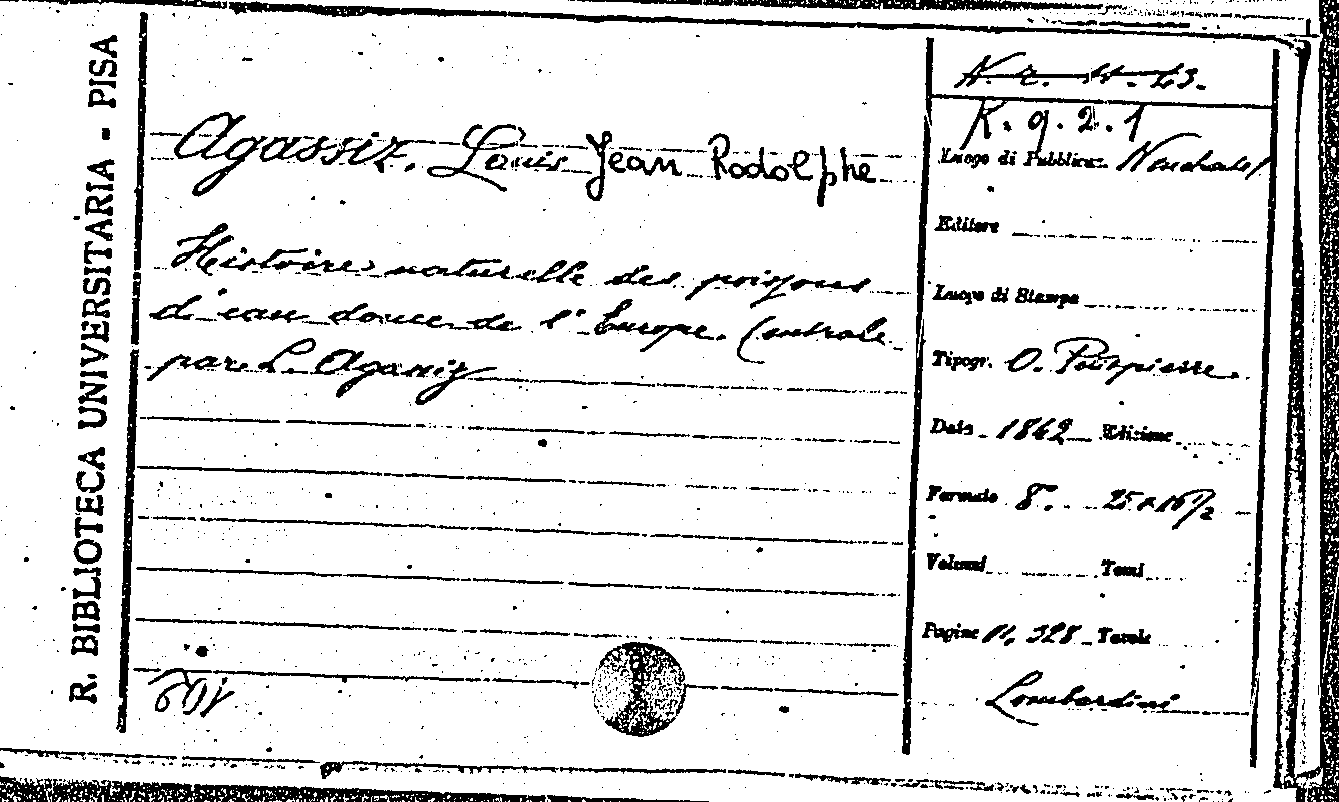 R. BIBLIOTECA UNIVERSITARIA - PISA
Agassiz. Louis Jean Rodolphe
Histoire naturelle des poissons
d'eau douce de l'Europe. Centrale
par L. Agassiz
N. 2. 11. 23.
K. 9. 2. 1
Luogo di Pubblicaz. Neuchatel
Editore
Luogo di Stampa
Tipogr. O. Petitpierre
Data 1842 Edizione
Formato 8°. 25 × 16 1/2
Volumi Tomi
Pagine 11, 328 Tavole
Lombardini